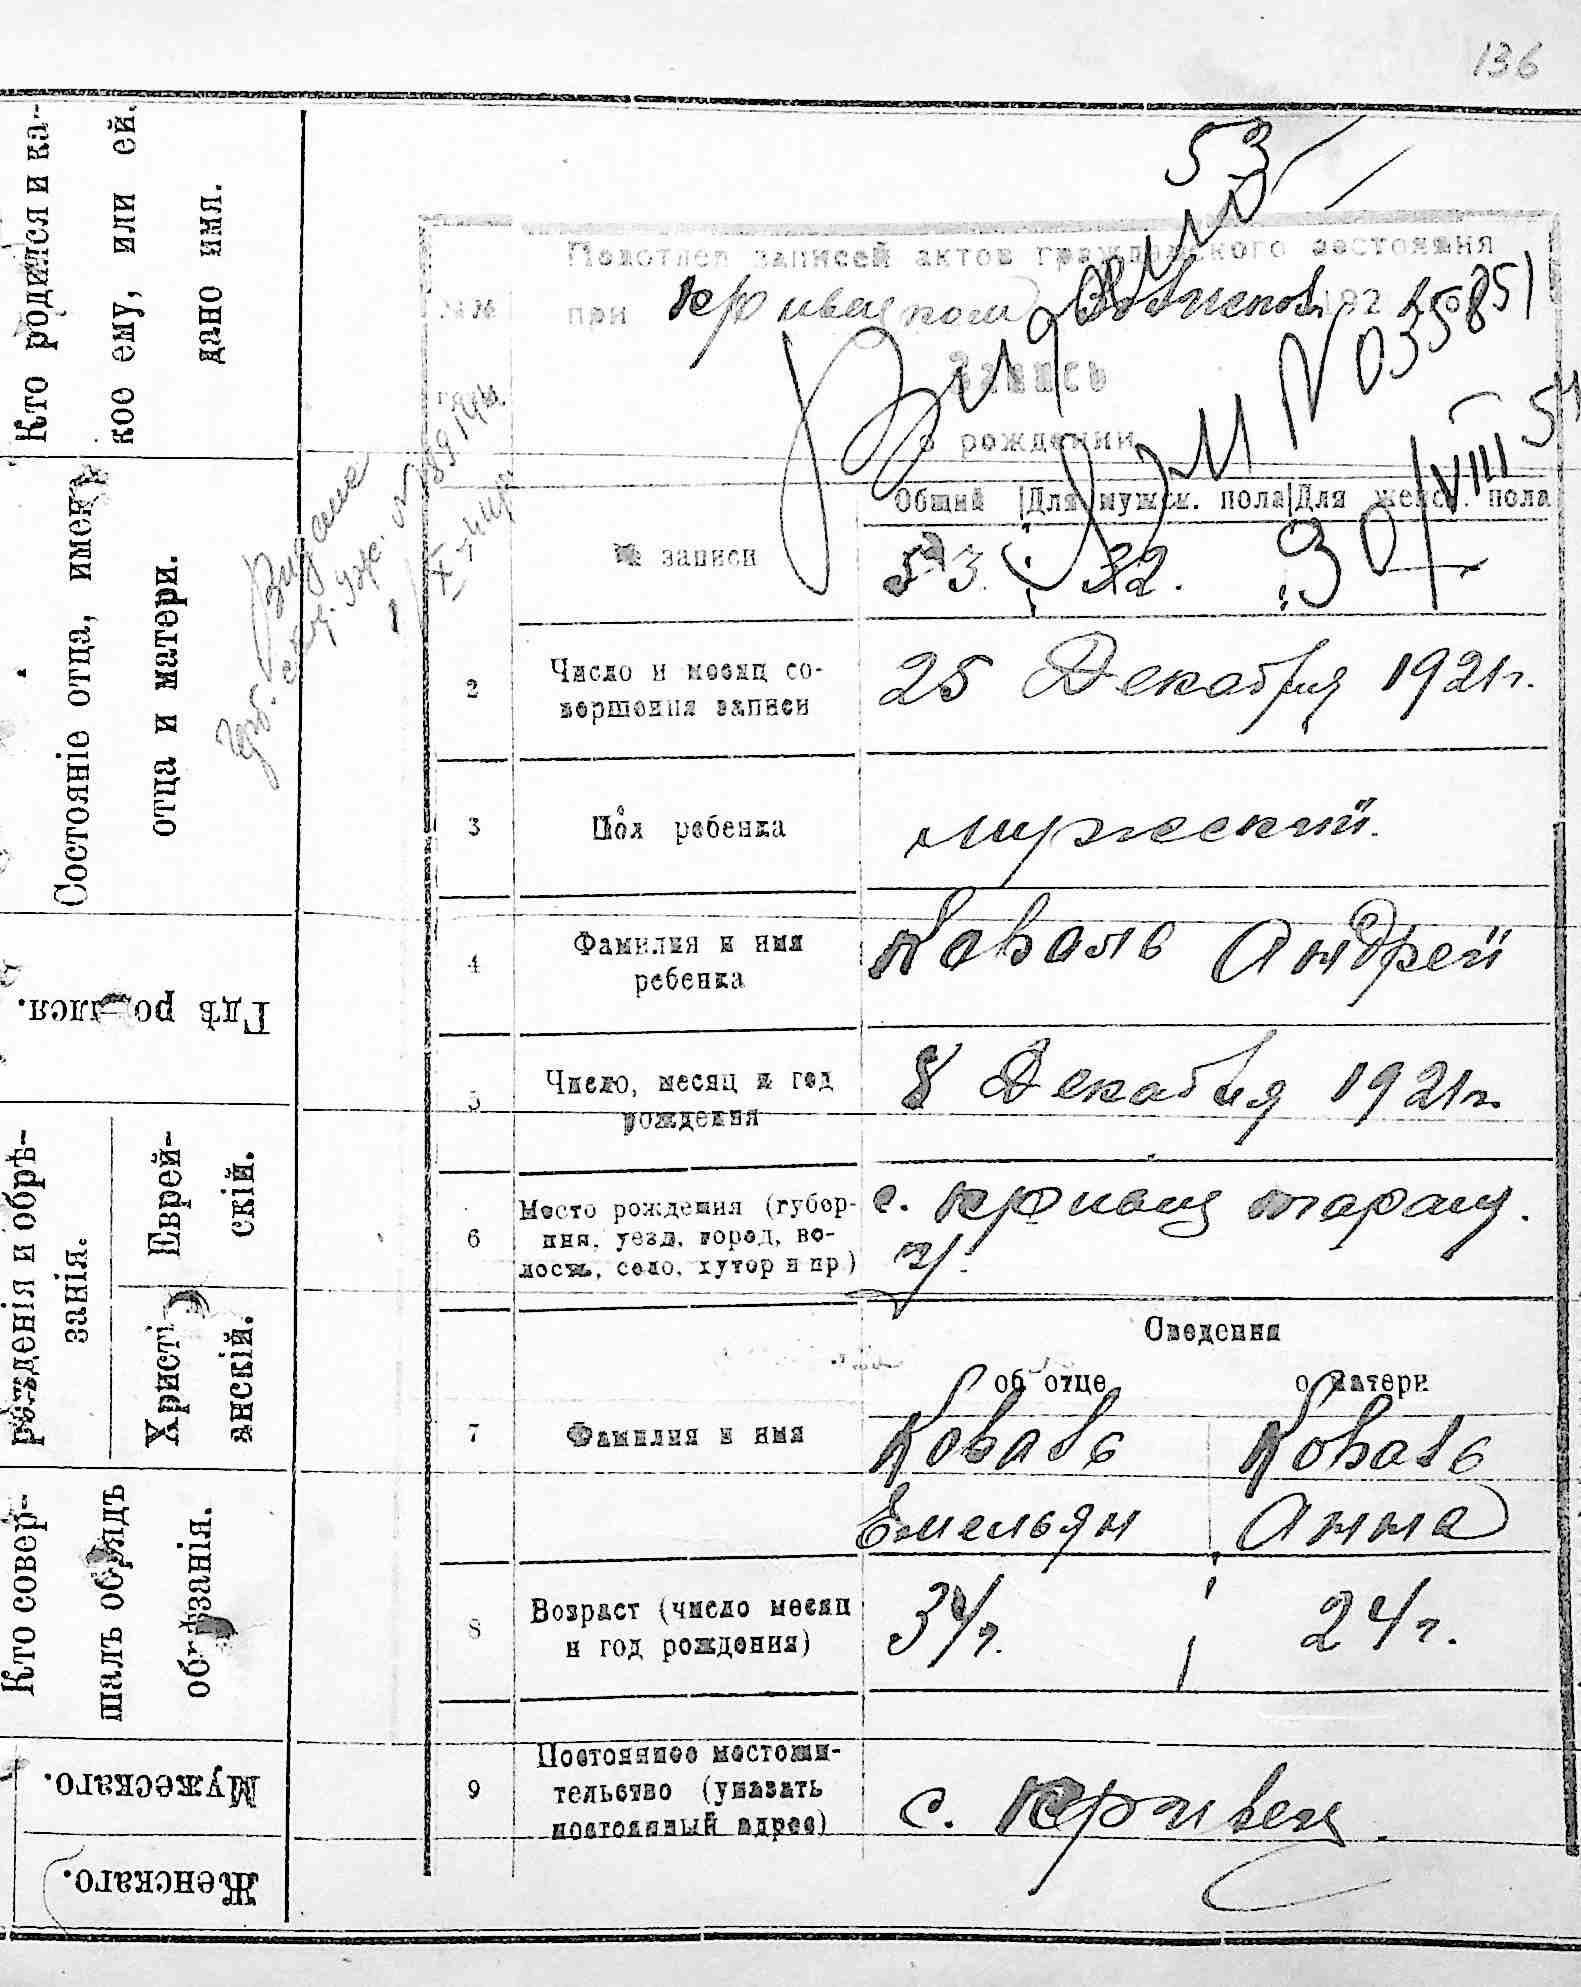 136
53
Кто родился и ка-
кое ему, или ей.
дано имя.
Состояніе отца, имена
отца и матери.
Гдѣ родился.
рожденія и обрѣ-
занія.
Еврей-
скій.
Христі-
анскій.
Кто совер-
шалъ обрядъ
обрѣзанія.
Мужескаго.
Женскаго.
Подотдел записей актов гражданского состояния
№№
при Кривецком 192
Запись
о рождении
№ 035851
30/VIII 54
Общий Для мужск. пола Для женск. пола
1 № записи 53. 32.
2 Число и месяц со-
вершения записи
25 Декабря 1921г.
3 Пол ребенка мужеский.
4 Фамилия и имя
ребенка
Коваль Андрей
5 Число, месяц и год
рождения
8 Декабря 1921г.
6 Место рождения (губер-
ния, уезд, город, во-
лость, село, хутор и пр.)
с. Кривец таращ.
у.
Сведения
об отце о матери
7 Фамилия и имя Коваль Коваль
Емельян Анна
8 Возраст (число месяц
и год рождения)
34г. 24г.
9 Постоянное местожи-
тельство (указать
постоянный адрес)
с. Кривец.